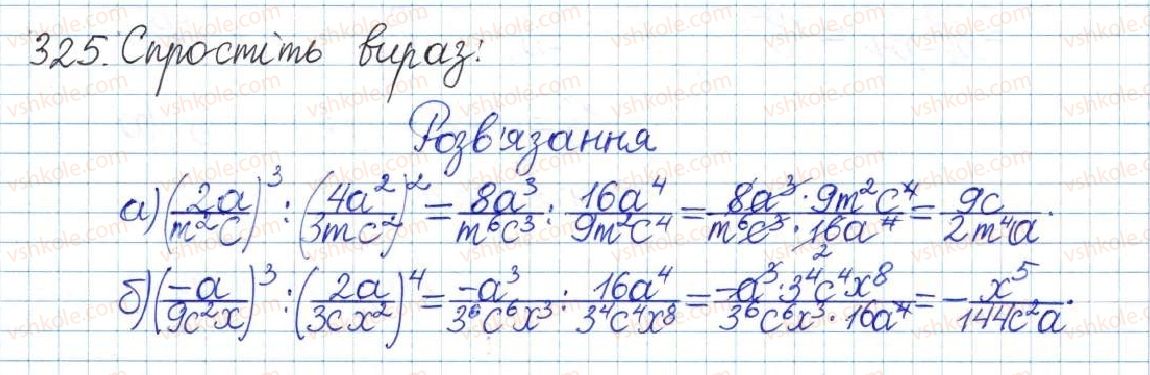 325. Спростіть вираз:
Розв'язання
а) (2a/m²c)³ : (4a²/3mc²)² = 8a³/m⁶c³ : 16a⁴/9m²c⁴ = 8a³·9m²c⁴/m⁶c³·16a⁴ 2 = 9c/2m⁴a.
б) (-a/9c²x)³ : (2a/3cx²)⁴ = -a³/3⁶c⁶x³ : 16a⁴/3⁴c⁴x⁸ = -a³·3⁴c⁴x⁸/3⁶c⁶x³·16a⁴ = -x⁵/144c²a.